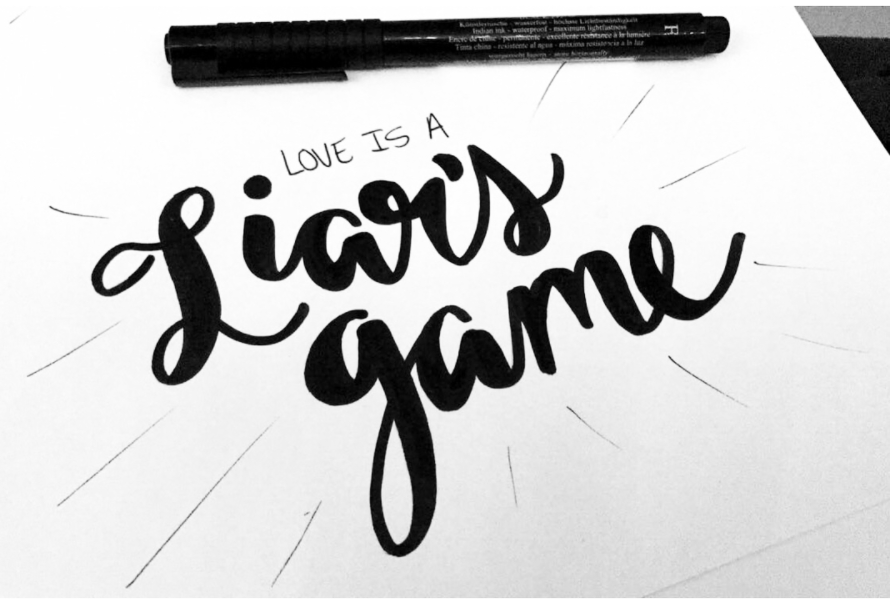 Indian ink - waterproof - maximum lightfastness
Encre de chine - permanente - excellente résistance à la lumière
Tinta china - resistente al agua - máxima resistencia a la luz
LOVE IS A
Liar's
game